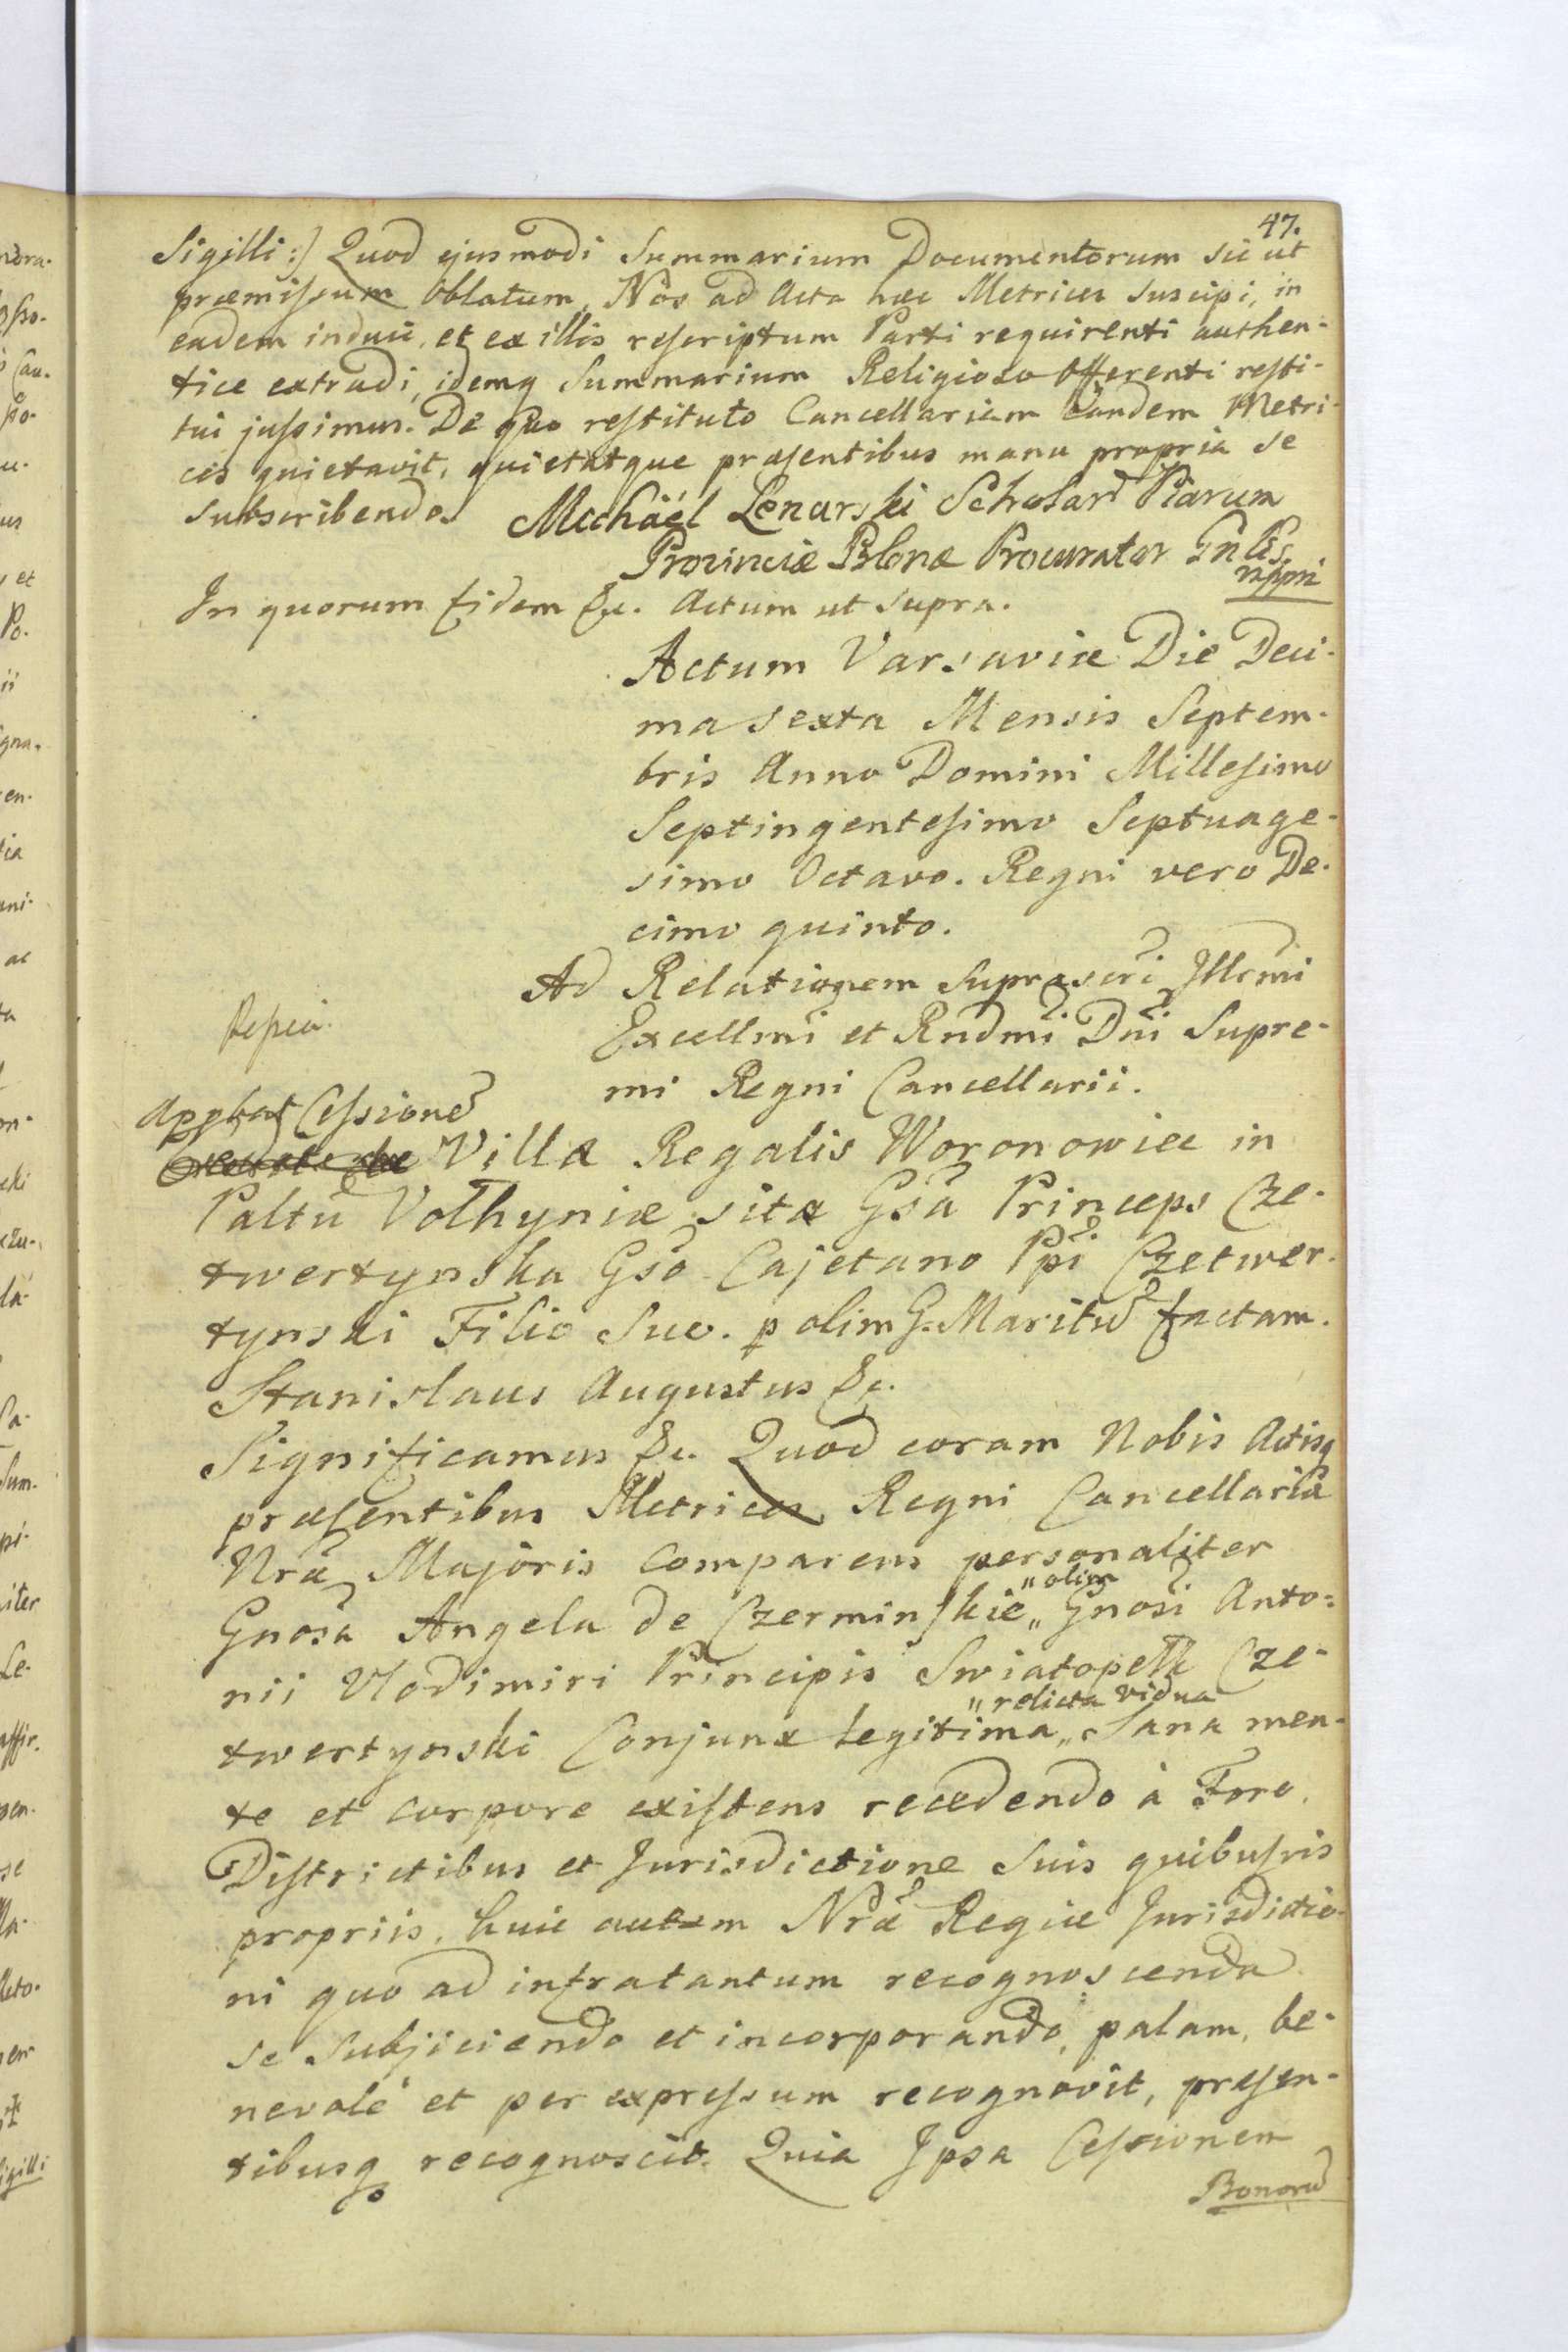 47.
Sigilli:) Quod ejusmodi Summarium Documentorum sic ut
præmissum Oblatum, Nos ad Acta hæc Metrices Suscipi, in
eadem indui, et ex illis rescriptum Parti requirenti authen-
tice extradi, idemq Summarium Religioso Offerenti resti-
tui jussimus. De quo restituto Cancellariam Eandem Metri-
ces quietavit, quietatque præsentibus manu propria se
Subscribendo.
Michaël Lenarski Scholar Piarum
Provinciæ Polonæ Procurator Gnlis.
mppri
In quorum fidem &c. Actum ut supra.
Actum Varsaviæ Die Deci-
ma Sexta Mensis Septem-
bris Anno Domini Millesimo
Septingentesimo Septuage-
simo Octavo. Regni vero De-
cimo quinto.
Ad Relationem Suprascri Illrmi
Excellmi et Rndmi Dni Supre-
mi Regni Cancellarii.
Appbat Cessione
Villæ Regalis Woronowice in
Paltu Volhyniæ sitæ Gsa Princeps Cze-
twertynska Gso Cajetano Ppi Czetwer-
tynski Filio Suo. p olim G. Maritu factam.
Stanislaus Augustus &c.
Significamus &c. Quod coram Nobis Actisq
præsentibus Metrices Regni Cancellariæ
Nræ Majoris Comparens personaliter
Gnosa Angela de Czerminskie „ Gnosi Anto-
"olim
nii Vlodimiri Principis Swiatopelk Cze-
twertynski Conjunx legitima „ Sana men-
"relicta vidua
te et corpore existens recedendo à Foro,
Districtibus et Jurisdictione Suis quibusvis
propriis, huic autem Nræ Regiæ Jurisdictio-
ni quo ad infratantum recognoscenda
se Subjiciendo et incorporando, palam, be-
nevole et per expressum recognovit, præsen-
tibusq recognoscit. Quia Ipsa Cessionem
Bonoru